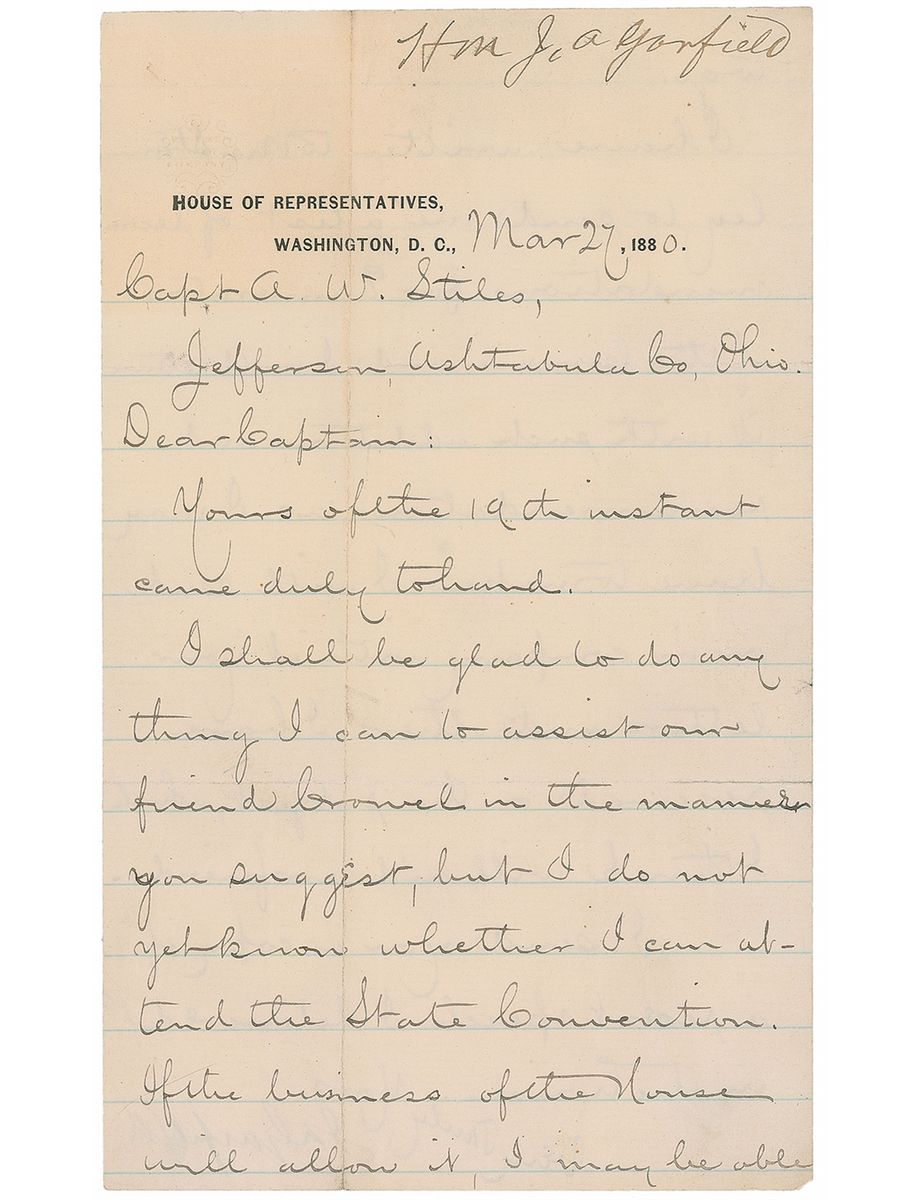 Hon J, A Garfield
HOUSE OF REPRESENTATIVES,
WASHINGTON, D. C., Mar 27, 1880.
Capt A. W. Stiles,
Jefferson, Ashtabula Co, Ohio.
Dear Captain:
Yours of the 19th instant
came duly to hand.
I shall be glad to do any
thing I can to assist our
friend Crowel in the manner
you suggest, but I do not
yet know whether I can at-
tend the State Convention.
If the business of the House
will allow it, I may be able